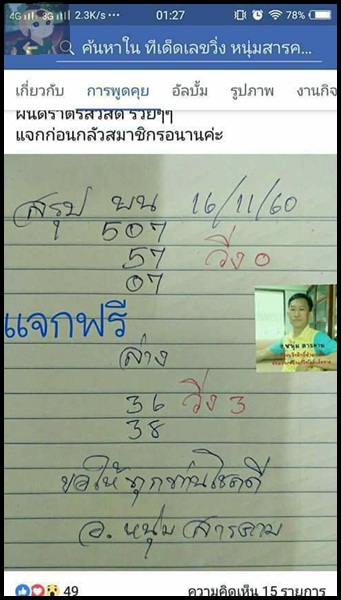 4G 3G 2.3K/s 01:27 78%
ค้นหาใน ทีเด็ดเลขวิ่ง หนุ่มสารค...
เกี่ยวกับ การพูดคุย อัลบั้ม รูปภาพ งานกิจ
แจกก่อนกลัวสมาชิกรอนานค่ะ
สรุป บน 16/11/60
507
57 วิ่ง 0
07
แจกฟรี
อ.หนุ่ม สารคาม
ล่าง
36 วิ่ง 3
38
ขอให้ทุกท่านโชคดี
อ. หนุ่ม สารคาม
49 ความคิดเห็น 15 รายการ